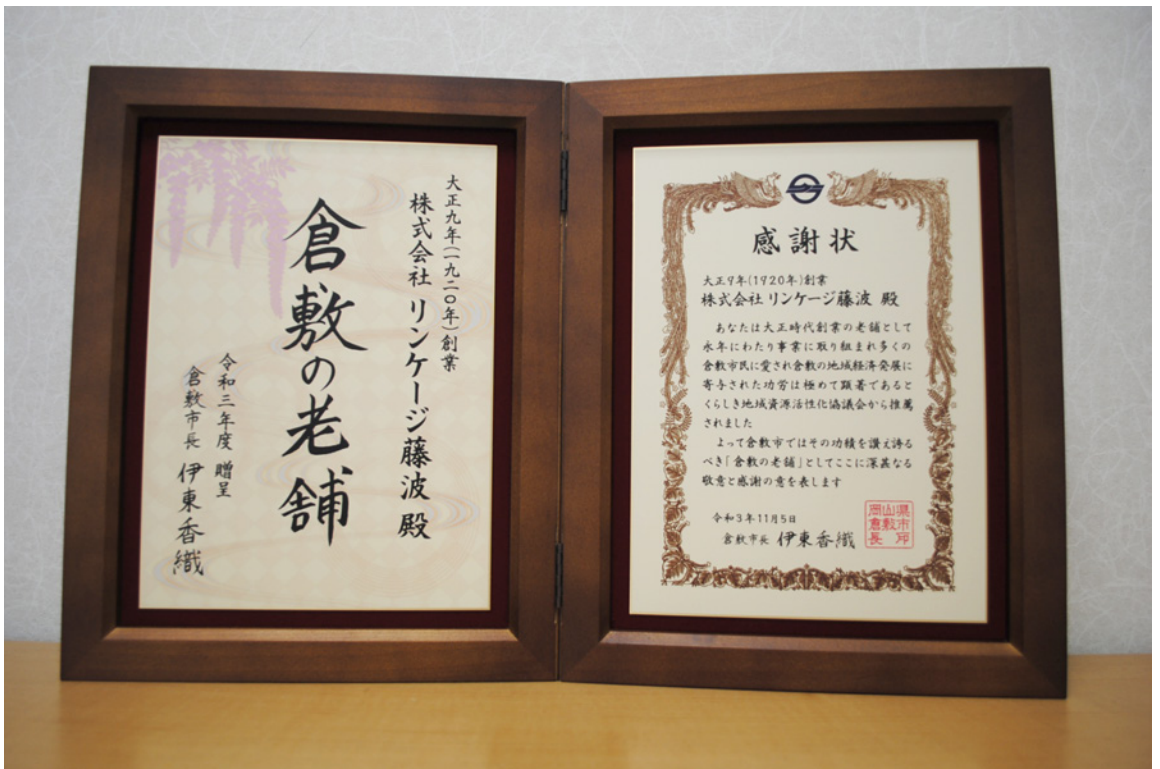 大正九年(一九二〇年)創業
株式会社 リンケージ藤波 殿
倉敷の老舗
令和三年度 贈呈
倉敷市長 伊東香織
感謝状
大正9年(1920年)創業
株式会社 リンケージ藤波 殿
あなたは大正時代創業の老舗として
永年にわたり事業に取り組まれ多くの
倉敷市民に愛され倉敷の地域経済発展に
寄与された功労は極めて顕著であると
くらしき地域資源活性化協議会から推薦
されました
よって倉敷市ではその功績を讃え誇る
べき「倉敷の老舗」としてここに深甚なる
敬意と感謝の意を表します
令和3年11月5日
倉敷市長 伊東香織
岡山県
倉敷市
長印